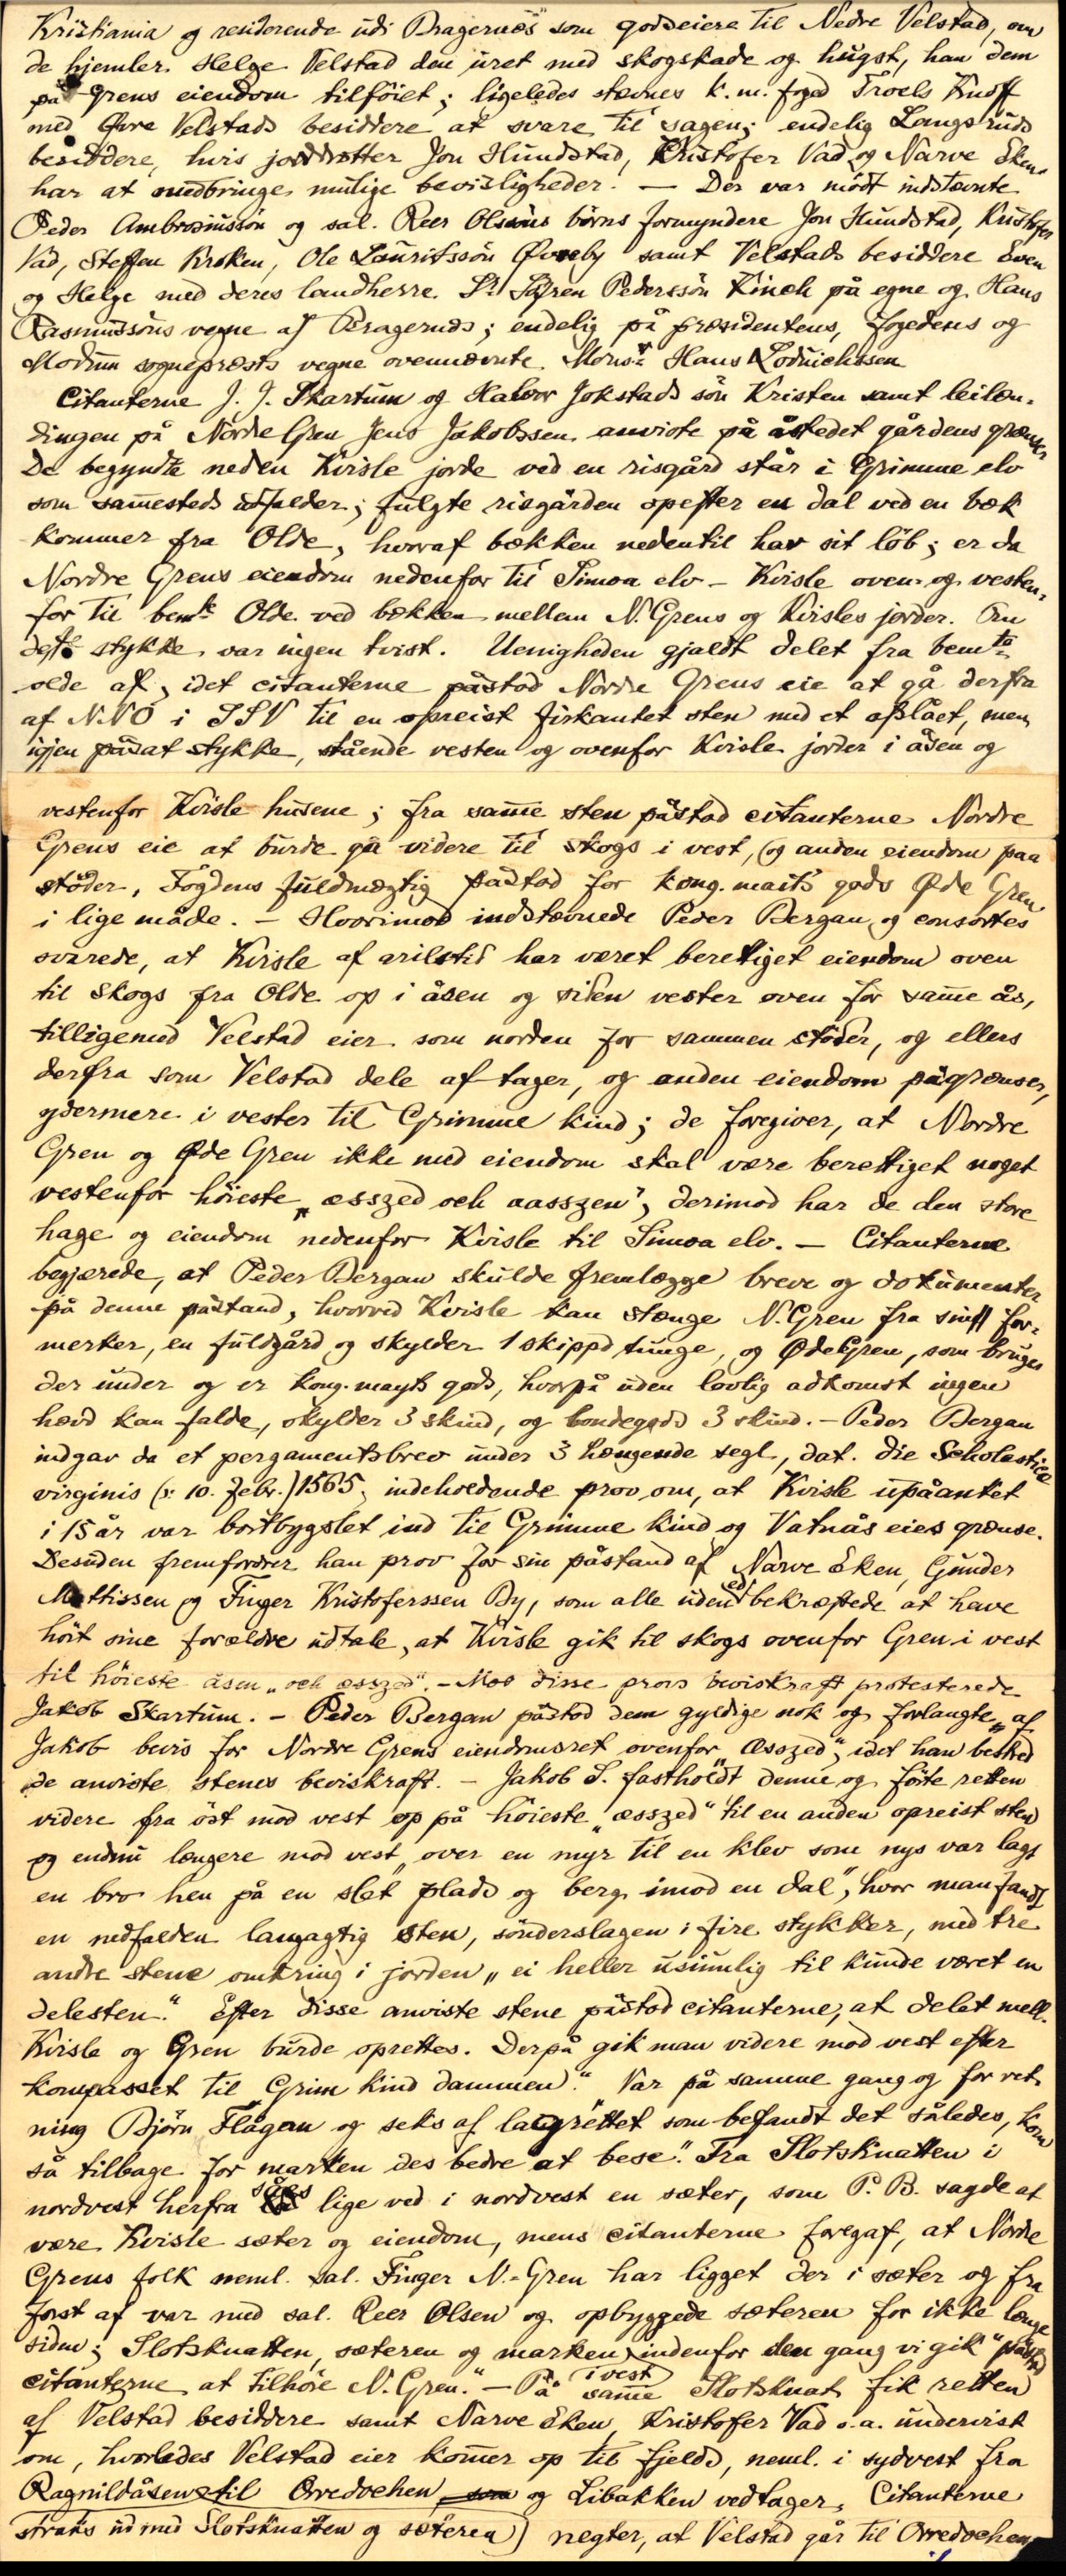 Kristiania og residerende udi Bragernæs som godseiere til Nedre Velstad, om
de hjemler Helge Velstad den uret med skogskade og hugst, han dem
på Grens eiendom tilföiet; ligeledes stævnes k. m. foged Troels Knoff
med Øvre Velstads besiddere at svare til sagen; endelig Langsruds
besiddere, hvis jorddrotter Jon Hundstad, Kristofer Vad og Narve Eken
har at medbringe mulige bevisligheder. — Der var mödt indstævnte
Peder Ambrosiussön og sal. Reer Olsöns börns formyndere Jon Hundstad, Kristofer
Vad, Steffen Kroken, Ole Lauritssön Øvreby samt Velstads besiddere Even
og Helge med deres landherre Sr. Söfren Pederssön Kinch på egne og Hans
Rasmussöns vegne af Bragernæs; endelig på præsidentens, fogedens og
Modum sognepræsts vegne ovennævnte Monsr. Hans Lodvichssen
Citanterne J. J. Skartum og Halvor Jokstads sön Kristen samt leilæn-
dingen på Nordre Gren Jens Jakobssen anviste på åstedet gårdens grænser
De begyndte neden Kvisle jorde ved en risgård står i Grimme elv
som sammesteds udfalder; fulgte risgården opefter en dal ved en bæk
kommer fra Olde, hvoraf bækken nedentil har sit löb; er da
Nordre Grens eiendom nedenfor til Simoa elv – Kvisle oven- og vesten-
for til bemte Olde ved bækken mellem N. Grens og Kvisles jorder. Om
dette stykke var ingen tvist. Uenigheden gjaldt delet fra bemte
olde af, idet citanterne påstod Nordre Grens eie at gå derfra
af N.NÖ i SSV til en opreist firkantet sten med et afslået, men
igjen påsat stykke, stående vesten og ovenfor Kvisle jorder i åsen og
vestenfor Kvisle husene; fra samme sten påstod citanterne Nordre
Grens eie at burde gå videre til skogs i vest, (og anden eiendom paa
stöder, Fogdens fuldmægtig påstod for kong. maits gods Øde Gren
i lige måde. – Hvorimod indstævnede Peder Bergan og consortes
svarede, at Kvisle af arilstid har været berettiget eiendom oven
til skogs fra Olde op i åsen og siden vester oven for samme ås,
tilligemed Velstad eier som norden for sammen stöder, og ellers
derfra som Velstad dele af tager, og anden eiendom pågrænser,
ydermere i vester til Grimme kind; de foregiver, at Nordre
Gren og Øde Gren ikke med eiendom skal være berettiget noget
vestenfor höieste „æsszed och aasszen“, derimod har de den store
hage og eiendom nedenfor Kvisle til Simoa elv. — Citanterne
begjærede, at Peder Bergan skulde fremlægge breve og dokumenter
på denne påstand, hvorved Kvisle kan stænge N. Gren fra sin for-
merker, en fuldgård og skylder 1 skippd tunge, og Øde Gren, som bruges
der under og er kong. mayts gods, hvorpå uden lovlig adkomst ingen
hævd kan falde, skylder 3 skind, og bondegods 3 skind. – Peder Bergan
indgav da et pergamentsbrev under 3 hængende segl, dat. die Scholasticæ
virginis (ɔ: 10. febr.) 1565, indeholdende prov om, at Kvisle upåanket
i 15 år var bortbygslet ind til Grimme kind og Vatnås eies grænse.
Desuden fremfordrer han prov for sin påstand af Narve Eken, Gunder
Mattissen og Finger Kristoferssen By, som alle uden ed bekræftede at have
hört sine forældre udtale, at Kvisle gik til skogs ovenfor Gren i vest
til höieste åsen „och æsszed“. – Mod disse provs beviskraft protesterede
Jakob Skartum. – Peder Bergan påstod dem gyldige nok og forlangte af
Jakob bevis for Nordre Grens eiendomsret ovenfor „Æsszed“, idet han bestred
de anviste stenes beviskraft. – Jakob S. fastholdt denne og förte retten
videre fra öst mod vest op på höieste „æsszed“ til en anden opreist sten
og endnu længere mod vest „over en myr til en klev som nys var lagt
en bro hen på en slet plads og berg imod en dal“, hvor man fandt
en nedfalden langagtig sten, sönderslagen i fire stykker, med tre
andre stene omkring i jorden „ei heller usiunlig til kunde været en
delesten.“ Efter disse anviste stene påstod citanterne, at delet mell.
Kvisle og Gren burde oprettes. Derpå gik man videre mod vest efter
kompasset til „Grim kind dammen“. Var på samme gang og forret-
ning Björn Flågan og seks af lagrettet som befandt det således, kom
så tilbage for marken des bedre at bese.“ Fra Slotsknatten i
nordvest herfra såes lige ved i nordvest en sæter, som P. B. sagde at
være Kvisle sæter og eiendom, mens citanterne foregaf, at Nordre
Grens folk neml. sal. Finger N.-Gren har ligget der i sæter og fra
först af var med sal. Reer Olsen og opbyggede sæteren for ikke længe
siden; Slotsknatten, sæteren og marken indenfor den gang vi gik“ påstod
citanterne at tilhöre N. Gren.“ – På samme i vest Slotsknat fik retten
af Velstad besiddere samt Narve Eken, Kristofer Vad o. a. undervist
om, hvorledes Velstad eier kommer op til fjelds, neml. i sydvest fra
Ragnildåsen til Orredoehen og Libakken vedtager, Citanterne
straks ud med Slotsknatten og sæteren) negter, at Velstad går til Orredoehen